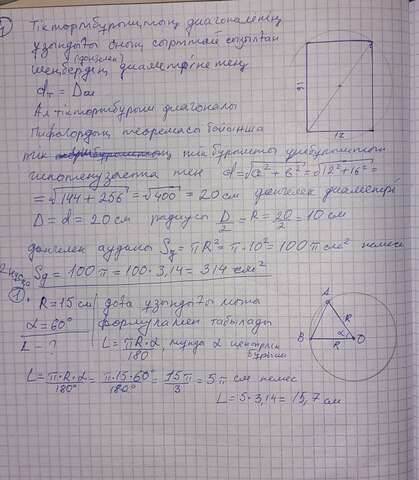 1 Тіктөртбұрыштың диагоналінің
ұзындығы оның сырттай сызылған
(дөңгелек)
шеңбердің диаметріне тең
dт = Dш
Ал тіктөртбұрыш диагоналы
Пифагордың теоремасы бойынша
тік тік бұрышты үшбұрыштың
гипотенузасына тең d=√a²+b²=√12²+16²=
=√144+256=√400=20 см дөңгелек диаметрі
D=d=20 см радиусы D/2=R=20/2=10 см
дөңгелек ауданы Sд=πR²=π·10²=100π см² немесе
Sд=100π=100·3,14=314 см²
16
12
2 нұсқа
1. R=15 см доға ұзындығы мына
α=60° формуламен табылады
L-? L=πRα/180, мұнда α центрлік
бұрыш
L=π·R·α/180°=π·15·60°/180°=15π/3=5π см немес
L=5·3,14=15,7 см
A
R
B
α
R
O